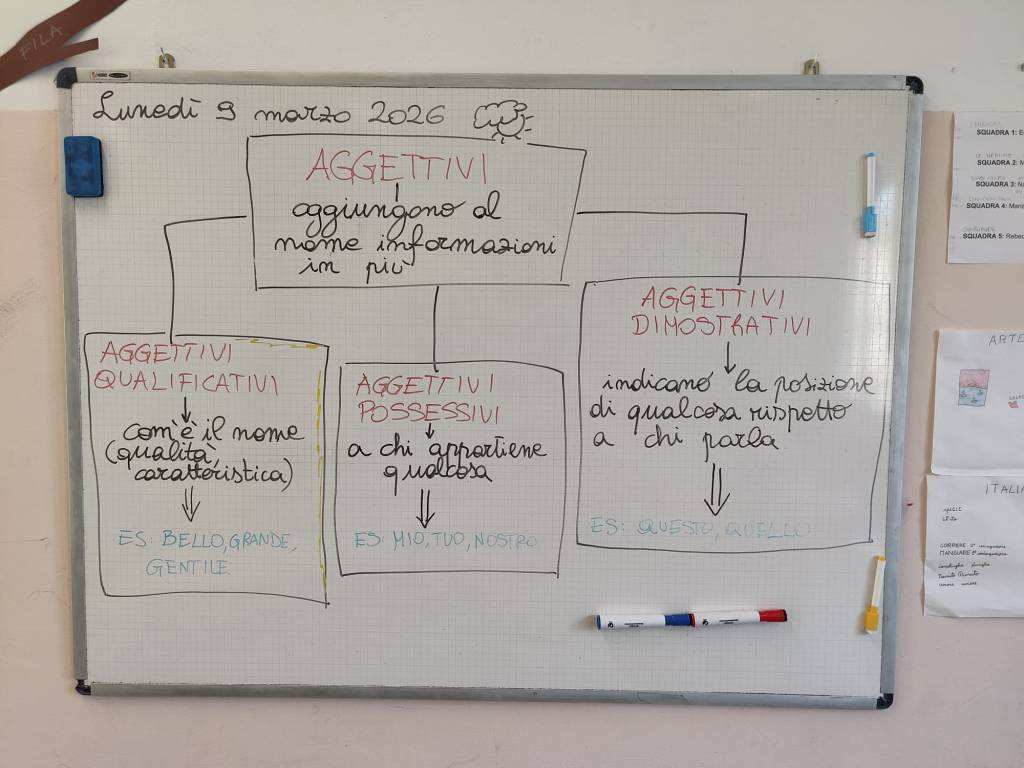 FILA
Lunedì 9 marzo 2026
AGGETTIVI
aggiungono al
nome informazioni
in più
AGGETTIVI
QUALIFICATIVI
com'è il nome
(qualità,
caratteristica)
ES: BELLO, GRANDE,
GENTILE
AGGETTIVI
POSSESSIVI
a chi appartiene
qualcosa
ES: MIO, TUO, NOSTRO
AGGETTIVI
DIMOSTRATIVI
indicano la posizione
di qualcosa rispetto
a chi parla
ES: QUESTO, QUELLO
SQUADRA 1:
SQUADRA 2:
SQUADRA 3:
SQUADRA 4: Maria
SQUADRA 5: Rebec
ARTE
ITALIA
CORRERE
MANGIARE